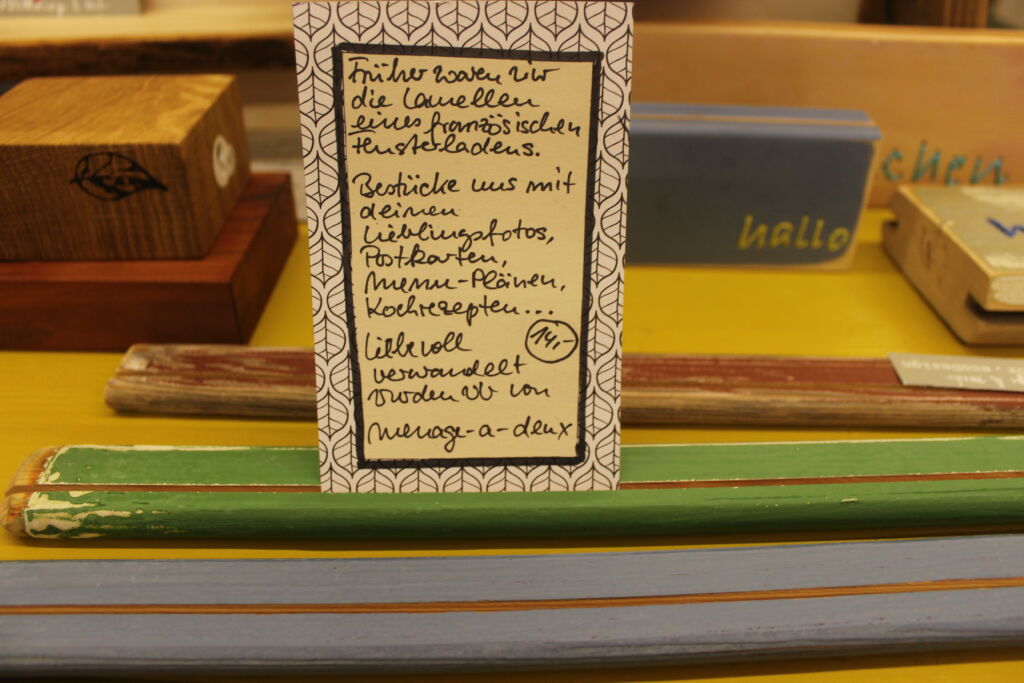 Früher waren wir
die Lamellen
eines französischen
Fensterladens.
Bestücke uns mit
deinen
Lieblingsfotos,
Postkarten,
Menu-Plänen,
Kochrezepten...
14,-
liebevoll
verwandelt
worden wir von
menage-a-deux
hallo
chen